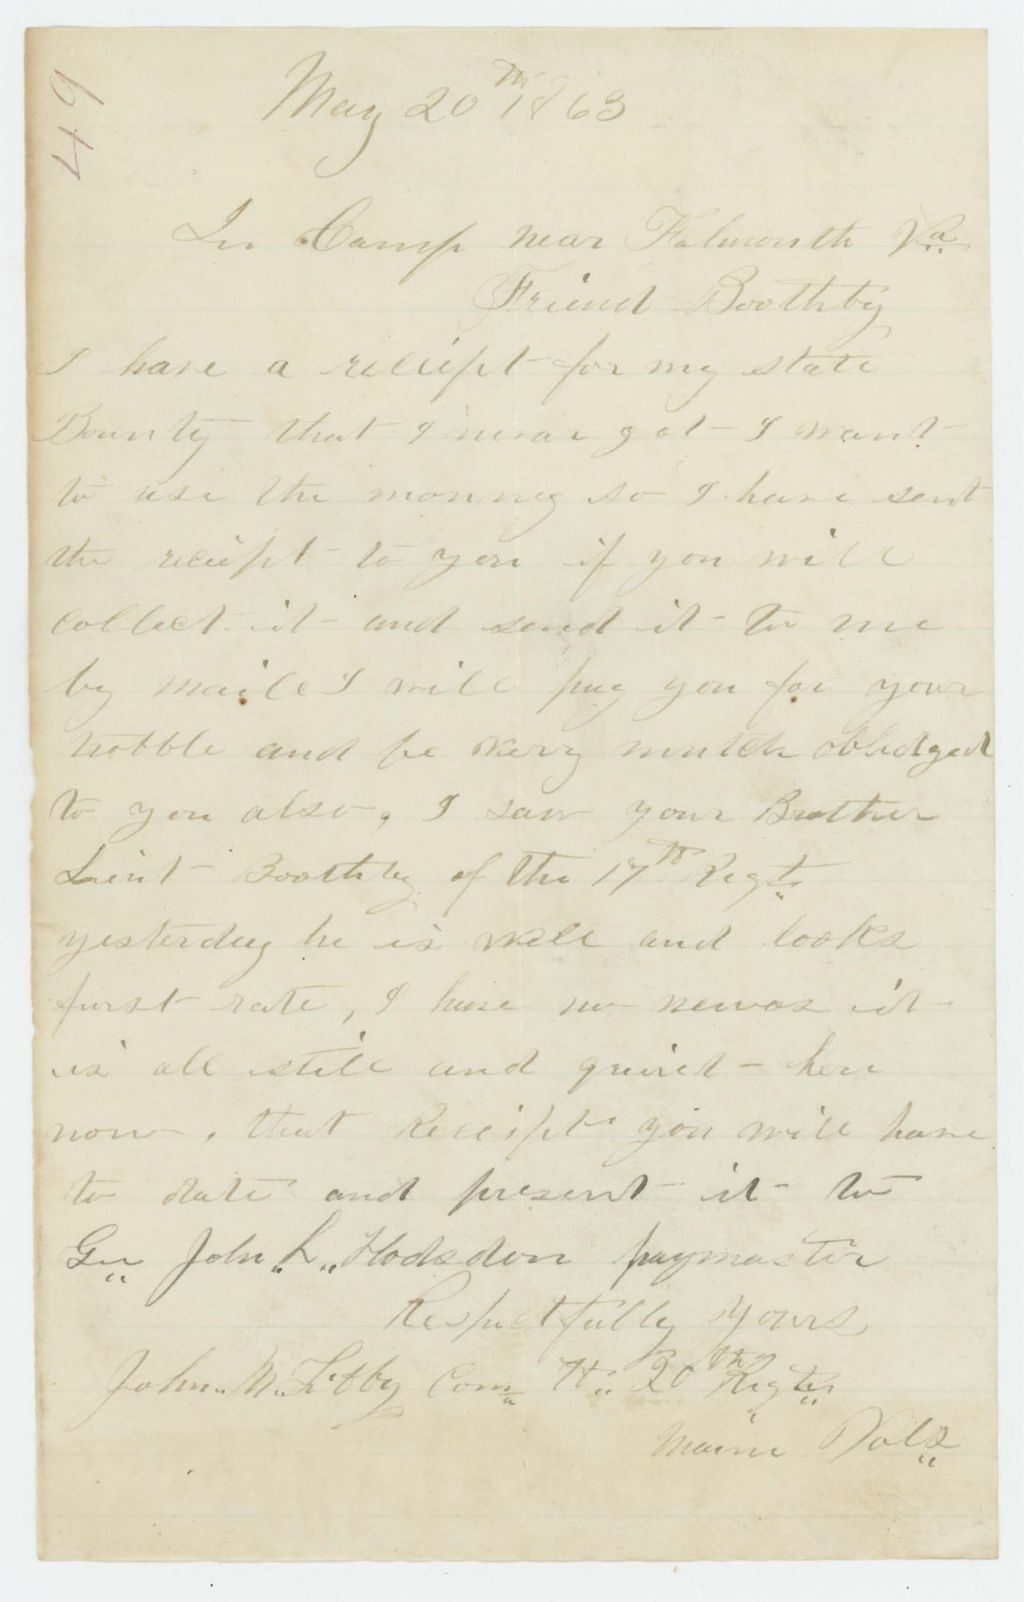 49
May 20th 1863
In Camp near Falmouth Va
Friend Boothby
I have a reciept for my state
Bounty that I never got I want
to use the monney so I have sent
the reciept to you if you will
collect it and send it to me
by maile I will pay you for your
trobble and be very mutch obledged
to you also, I saw your Brother
Lieut Boothby of the 17th Regt
yesterday he is well and looks
furst rate, I have no newas it
is all still and quiret here
now. that Receipt you will have
to date and present it to
Gen John L. Hodsdon paymaster
Respectfully yours
John. M. Libby Com H. 20th Regt
Maine Vols